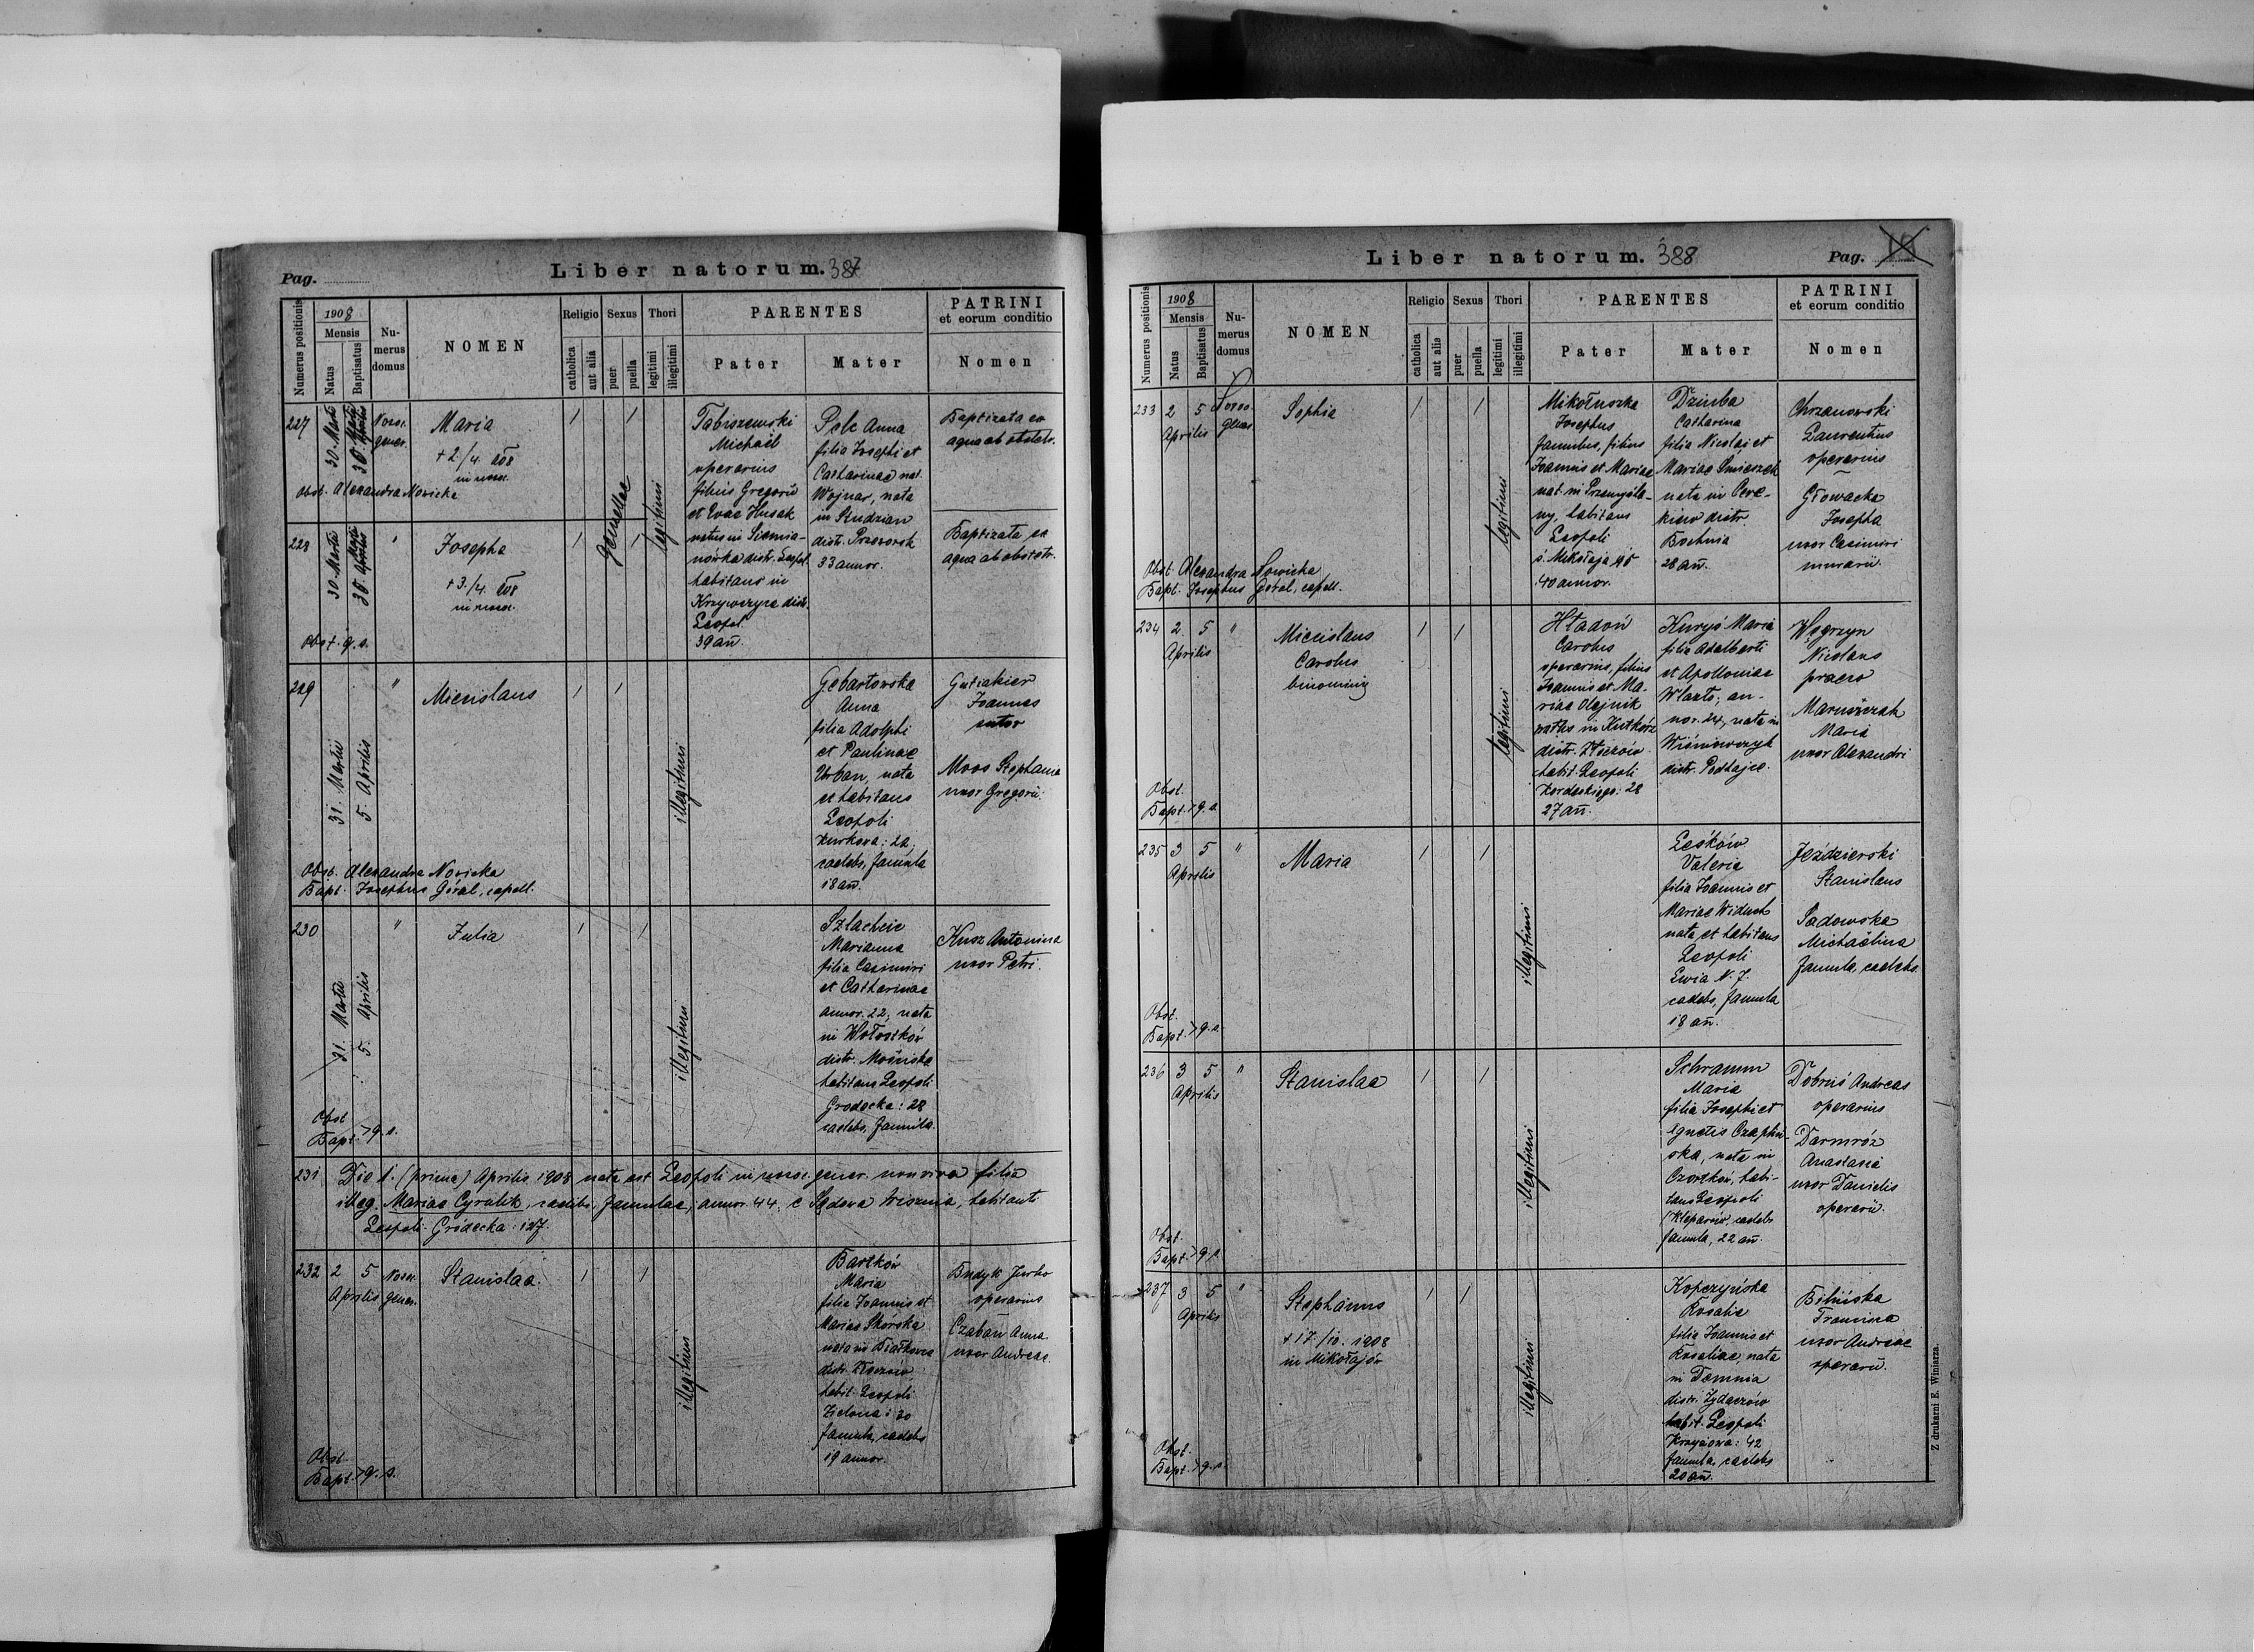 Pag.
Liber natorum. 387
Numerus positionis
1908
Mensis
Natus
Baptisatus
Numerus domus
NOMEN
Religio
catholica
aut alia
Sexus
puer
puella
Thori
legitimi
illegitimi
PARENTES
Pater
Mater
PATRINI
et eorum conditio
Nomen
227
30 Martii
Nosoc.
gener.
Maria
+ 2/4. 908
in nosoc.
Obst. Alexandra Nowicka
/ /
gemellae
legitimi
Tabiszewski
Michaël
operarius
filius Gregorii
et Evae Husak
natus in Siemia-
nówka distr. Leopol.
habitans in
Krzywczyce distr.
Leopol.
39 añ.
Pelc Anna
filia Josephi et
Catharinae nat.
Wojnar, nata
in Studzian
distr. Przeworsk
33 annor.
Baptizata ex
aqua ab obstetr.
228
30 Martii
"
Josepha
+ 3/4. 908
in nosoc.
Obst. q. s.
/ /
Baptizata ex
aqua ab obstetr.
229
31. Martii
5. Aprilis
"
Miecislaus
/ /
illegitimi
Gebartowska
Anna
filia Adolphi
et Paulinae
Urban, nata
et habitans
Leopoli
Kurkowa: 22,
caelebs, famula
18 añ.
Joannes
sutor
Moos Stephania
uxor Gregorii.
Obst. Alexandra Nowicka
Bapt. Josephus Góral, capell.
230
31. Martii
5. Aprilis
"
Julia
/ /
illegitimi
Szlachcic
Marianna
filia Casimiri
et Catharinae
annor. 22, nata
in Wołostków
distr. Mościska
habitans Leopoli
Grodecka: 28
caelebs, famula.
Kusz Antonina
uxor Petri.
Obst.
Bapt. > q. s.
231 Die 1. (prima) Aprilis 1908 nata est Leopoli in nosoc. gener. non viva filia
illeg. Mariae Cyralik, caelibis, famulae, annor. 44, e Sądowa Wisznia, habitant.
Leopoli Gródecka: 127.
232
2 5
Aprilis
Nosoc.
gener.
Stanislaa.
/ /
illegitimi
Bartków
Maria
filia Joannis et
Mariae Skórska
nata in Białkowce
distr. Złoczów
habit. Leopoli
Zielona: 30
famula, caelebs
19 annor.
Budyk Jurko
operarius
Czaban Anna
uxor Andreae.
Obst.
Bapt. > q. s.
Liber natorum. 388
Pag.
Numerus positionis
1908
Mensis
Natus
Baptisatus
Numerus domus
NOMEN
Religio
catholica
aut alia
Sexus
puer
puella
Thori
legitimi
illegitimi
PARENTES
Pater
Mater
PATRINI
et eorum conditio
Nomen
233
2 5
Aprilis
Nosoc.
gener.
Sophia
/ /
legitimi
Mikołuszka
Josephus
famulus, filius
Joannis et Mariae
nat. in Przemyśla-
ny, habitans
Leopoli
ś. Mikołaja
40 annor.
Dziuba
Catharina
filia Nicolai et
Mariae Smieszek
nata in Cere-
kiew distr.
Bochnia
28 añ.
Chrzanowski
Laurentius
operarius
Głowacka
Josepha
uxor Casimiri
murarii.
Obst. Alexandra Nowicka
Bapt. Josephus Góral, capell.
234
2 5
Aprilis
"
Miecislaus
Carolus
binominis
/ /
legitimi
Hładoń
Carolus
operarius, filius
Joannis et Ma-
riae Olejnik
natus in Kutkórz
distr. Złoczów
habit. Leopoli
Kordeckiego: 28
27 añ.
Kuryś Maria
filia Adalberti
et Apolloniae
Wlazło, an-
nor. 24, nata in
Wiśniowczyk
distr. Podhajce.
Węgrzyn
Nicolaus
praeco
Maruszczak
Maria
uxor Alexandri
Obst.
Bapt. > q. s.
235
3 5
Aprilis
"
Maria
/ /
illegitimi
Leśków
Valeria
filia Joannis et
Mariae Widuch
nata et habitans
Leopoli
Lwia N. 7.
caelebs, famula
18 añ.
Jeździerski
Stanislaus
Sadowska
Michaëlina
famula, caelebs.
Obst.
Bapt. > q. s.
236
3 5
Aprilis
"
Stanislaa
/ /
illegitimi
Schramm
Maria
filia Josephi et
Agnetis Czaplin-
ska, nata in
Czortków, habi-
tans Leopoli
Kleparów, caelebs
famula, 22 añ.
Dobruś Andreas
operarius
Darmróz
Anastasia
uxor Danielis
operarii.
Obst.
Bapt. > q. s.
237
3 5
Aprilis
"
Stephanus
+ 17/10. 1908
in Mikołajów
/ /
illegitimi
Kopczyńska
Rosalia
filia Joannis et
Rosaliae, nata
in Demnia
distr. Żydaczów
habit. Leopoli
Krzyżowa: 42
famula, caelebs
20 añ.
Bilińska
Francisca
uxor Andreae
operarii.
Obst.
Bapt. > q. s.
Z drukarni E. Winiarza.